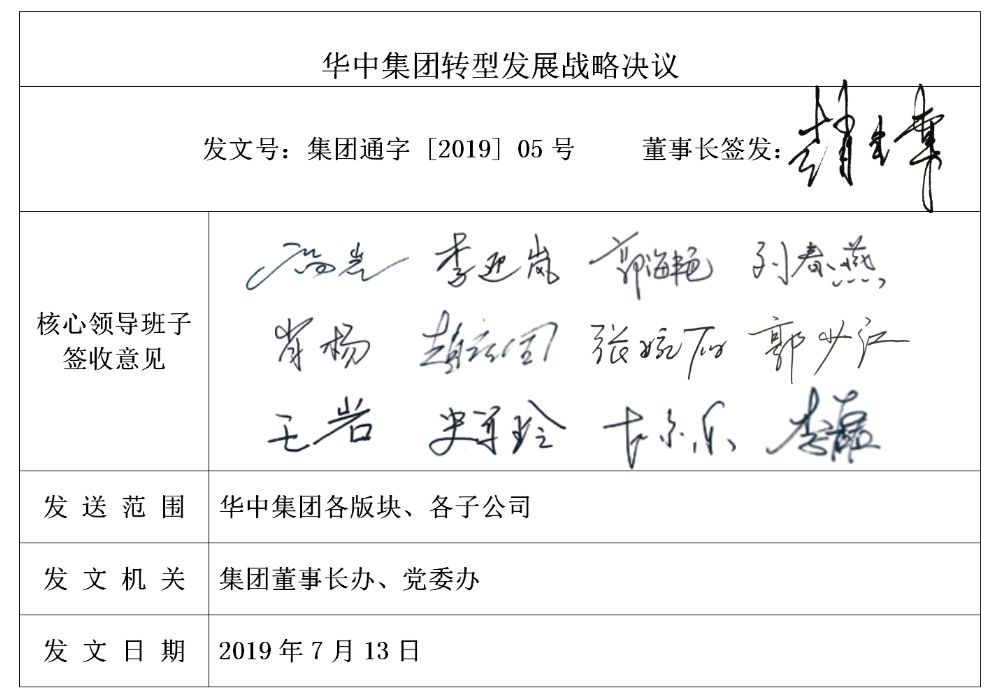 华中集团转型发展战略决议
发文号：集团通字［2019］05号 董事长签发：
核心领导班子
签收意见
李迎岚 郭海艳 刘春燕
肖杨 张婉石 郭少江
王岩 李磊
发送范围 华中集团各版块、各子公司
发文机关 集团董事长办、党委办
发文日期 2019年7月13日